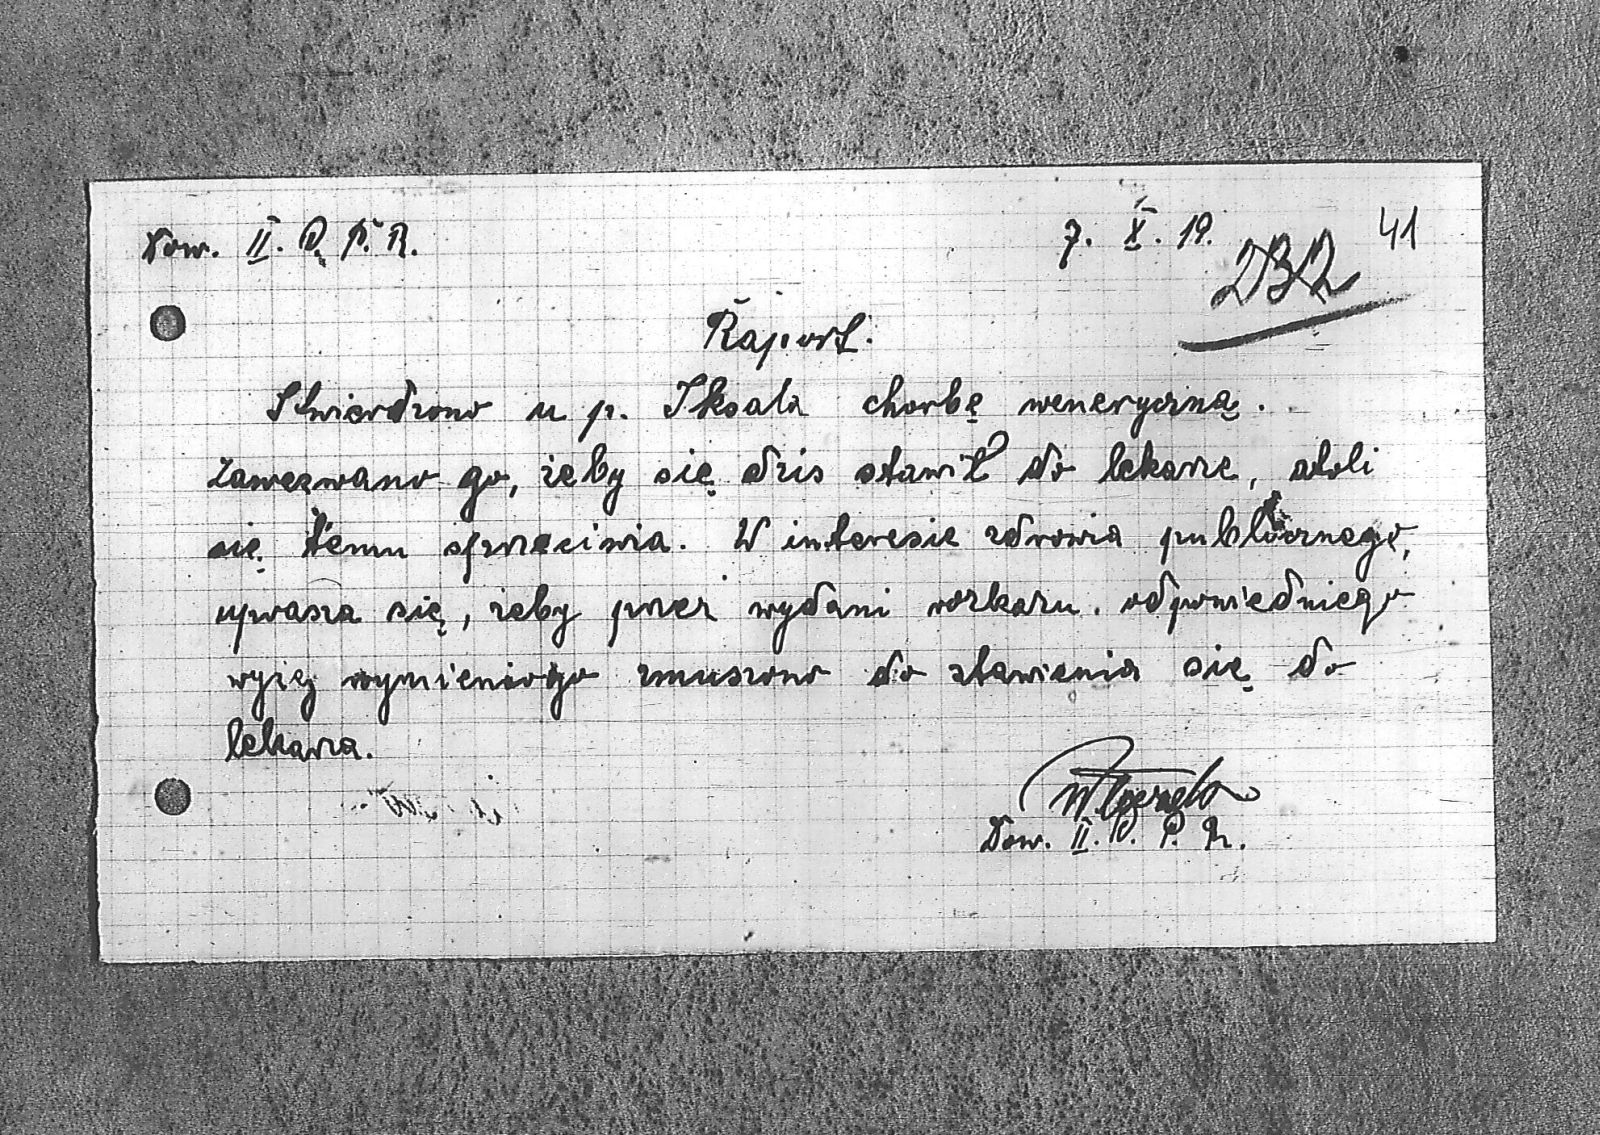 Dow. II. P. P. R.
7. X. 19.
41
232
Raport.
Stwierdzono u p. Iksala chorbę weneryczną.
Zawezwano go, żeby się dzis stawił do lekarze, atoli
się temu sprzeciwia. W interesie zdrowia publicznego,
uprasza się, żeby przez wydani rozkazu odpowiedniego
wyżej wymieniogo zmuszono do stawienia się do
lekarza.
Dow. II. P. P. R.